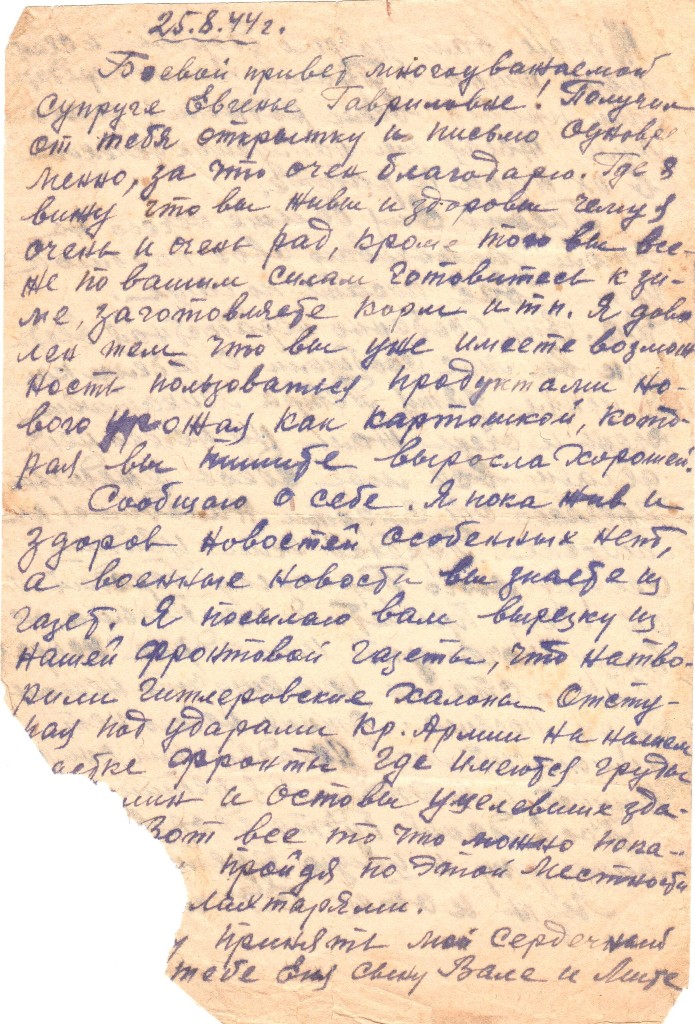 25.8.44 г.
Боевой привет многоуважаемой
супруге Евгенье Гавриловне! Получил
от тебя открытку и письмо одновре
менно, за что очен благодарю. Где я
вижу что вы живы и здоровы чему я
очень и очень рад, кроме того вы все-
же по вашим силам готовитесь к зи-
ме, заготовляете корм и тп. Я дово
лен тем что вы уже имеете возмож
ность пользоваться продуктами но-
вого урожая как картошкой, кото-
рая вы пишите выросла хорошей.
Сообщаю о себе. Я пока жив и
здоров новостей особенных нет,
а военные новости вы знаете из
газет. Я посылаю вам вырезку из
нашей фронтовой газеты, что натво-
рили гитлеровские халопы отсту-
пая под ударами Кр. Армии на нашем
астке фронты где имеются груды
и остовы уцелевших зда-
Вот все то что можно пока-
пройдя по этой местности
лихтарями.
у принять мой сердечный
тебе Еня сыну Вале и Мите